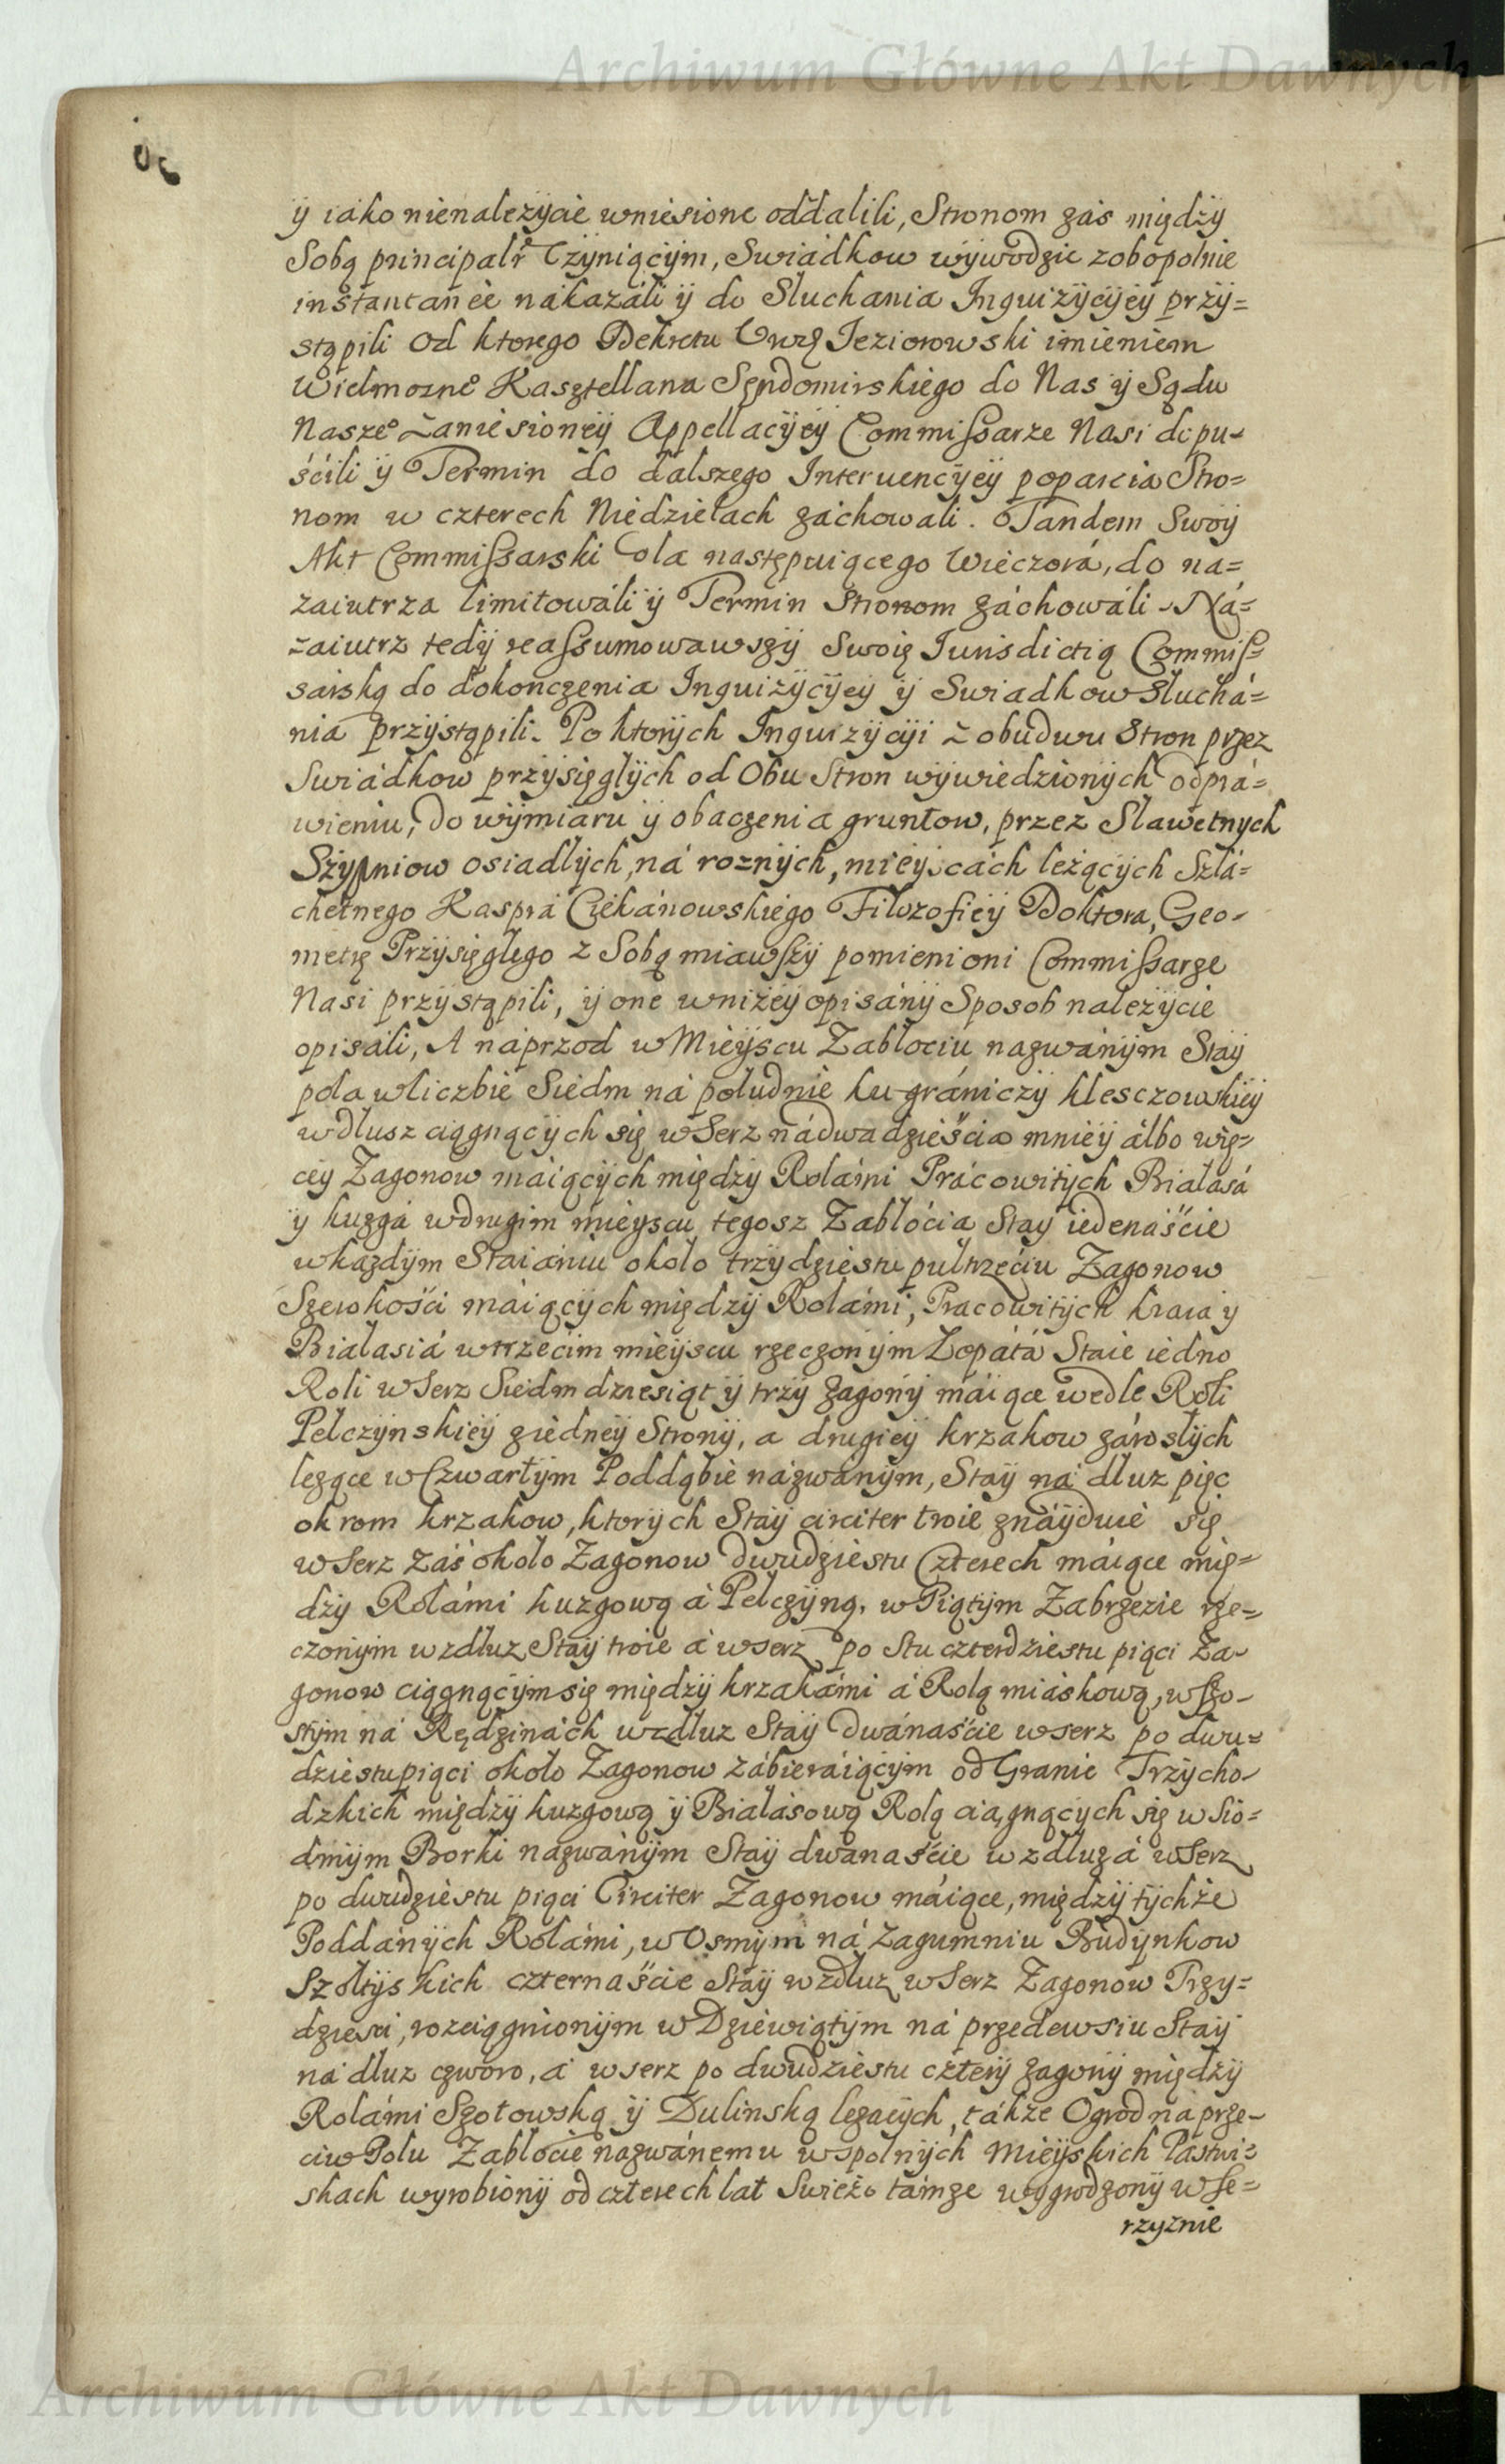 Archiwum Główne Akt Dawnych
ÿ iako nienalezÿcie wniesione oddalili, Stronom zas międzÿ
Sobą principalr Czÿniącÿm, Swiadkow wÿwodzic zobopolnie
instantanee nakazáli ÿ do Sluchania Inquizÿcÿeÿ przÿ=
stąpili Od ktorego Dekretu Urodz Ieziorowski imieniem
Wielmozne° Kasztellana Sędomirskiego do Nas ÿ Sądu
Nasze° Zaniesioneÿ Appellacÿeÿ Commißarze Nasi dopu=
ścili ÿ Termin do dalszego Interuencÿeÿ poparcia Stro=
nom w czterech Niedzielach záchowali. Tandem Swoÿ
Akt Commißarski dla następuiącego Wieczorá, do na=
zaiutrza limitowáli ÿ Termin Stronom záchowáli. Ná=
zaiutrz tedÿ reaßumowawszÿ Swoię Iurisdictią Commiſ=
sarską do dokonczenia Inquizÿcÿeÿ ÿ Swiadkow Sluchá=
nia przÿstąpili. Po ktorÿch Inquizÿcÿi z obudwu Stron przez
Swiádkow przÿsięglÿch od Obu Stron wÿwiedzionÿch odprá=
wieniu, do wÿmiaru ÿ obaczenia gruntow, przez Slawetnych
Szypniow osiadlÿch, ná roznÿch, mieÿscách leżącÿch Szlá=
chetnego Kaspra Ciekánowskiego Filozofieÿ Doktora, Geo=
metrę Przÿsięglego z Sobą miawſzÿ pomienioni Commißarze
Nasi przÿstąpili, ÿ one wniżeÿ opisánÿ Sposob należÿcie
opisáli, A náprzod w Mieÿscu Zablociu nazwánÿm Staÿ
pola wliczbie Siedm ná poludnie ku grániczÿ klesczowskieÿ
wdlusz ciągnącÿch się wSerz nádwadzieścia mnieÿ álbo wię=
ceÿ Zagonow máiącÿch międzÿ Rolámi Prácowitÿch Bialasá
ÿ kuzgá wdrugim mieÿscu tegosz Zablócia Staÿ iedenaście
wkażdÿm Staianiu okolo trzÿdziestu pultrzeciu Zagonow
Szerokości máiącÿch międzÿ Rolámi, Pracowitÿch kraia ÿ
Bialasiá wtrzecim mieÿscu rzeczonÿm Lopátá Staie iedno
Roli wSerz Siedmdziesiąt ÿ trzÿ Zagonÿ máiące wedle Roli
Pelczÿnskieÿ ziedneÿ Stronÿ, a drugieÿ krzakow zároslÿch
leżące wCzwartÿm Poddąbie názwánÿm, Staÿ ná dluz pięc
okrom krzakow, ktorÿch Staÿ circiter troie znáÿduie się
wSerz záś okolo Zagonow dwudziestu Czterech máiące mię=
dzÿ Rolámi kuzgową á Pelczÿną, wPiątÿm Zabrzezie rze=
czonÿm wzdluz Staÿ troie á wserz po Stu czterdziestu piąci Za=
gonow ciągnącÿmsię międzÿ krzakámi á Rolą miáskową, wſzo=
stÿm ná Rędzinách wzdluz Staÿ dwánaście wserz po dwu=
dziestupiąci okolo Zagonow zábieráiącÿm od Granic Trzÿcho=
dzkich międzÿ kuzgową ÿ Bialásową Rolą ciągnącÿch się wSio=
dmÿm Borki nazwánÿm Staÿ dwanaście wzdluz á wSerz
po dwudziestu piąci Circiter Zagonow máiące, międzÿ tÿchże
Poddánÿch Rolámi, w Osmÿm ná Zagumniu Budÿnkow
Szoltÿskich czternaście Staÿ wzdluz wSerz Zagonow Trzy=
dziesci, rozciągnionÿm w Dziewiątÿm ná przedewsiu Staÿ
ná dluz czworo, á wserz po dwudziestu czterÿ zagonÿ międzÿ
Rolámi Szotowską ÿ Dulinską leżącÿch, tákże Ogrod na prze=
ciw Polu Zablocie nazwánemu wspolnÿch Mieÿskich Pástwi=
skach wyrobionÿ od czterech lat Swieżo támze wygrodzonÿ wSe=
rzyznie
Archiwum Główne Akt Dawnych